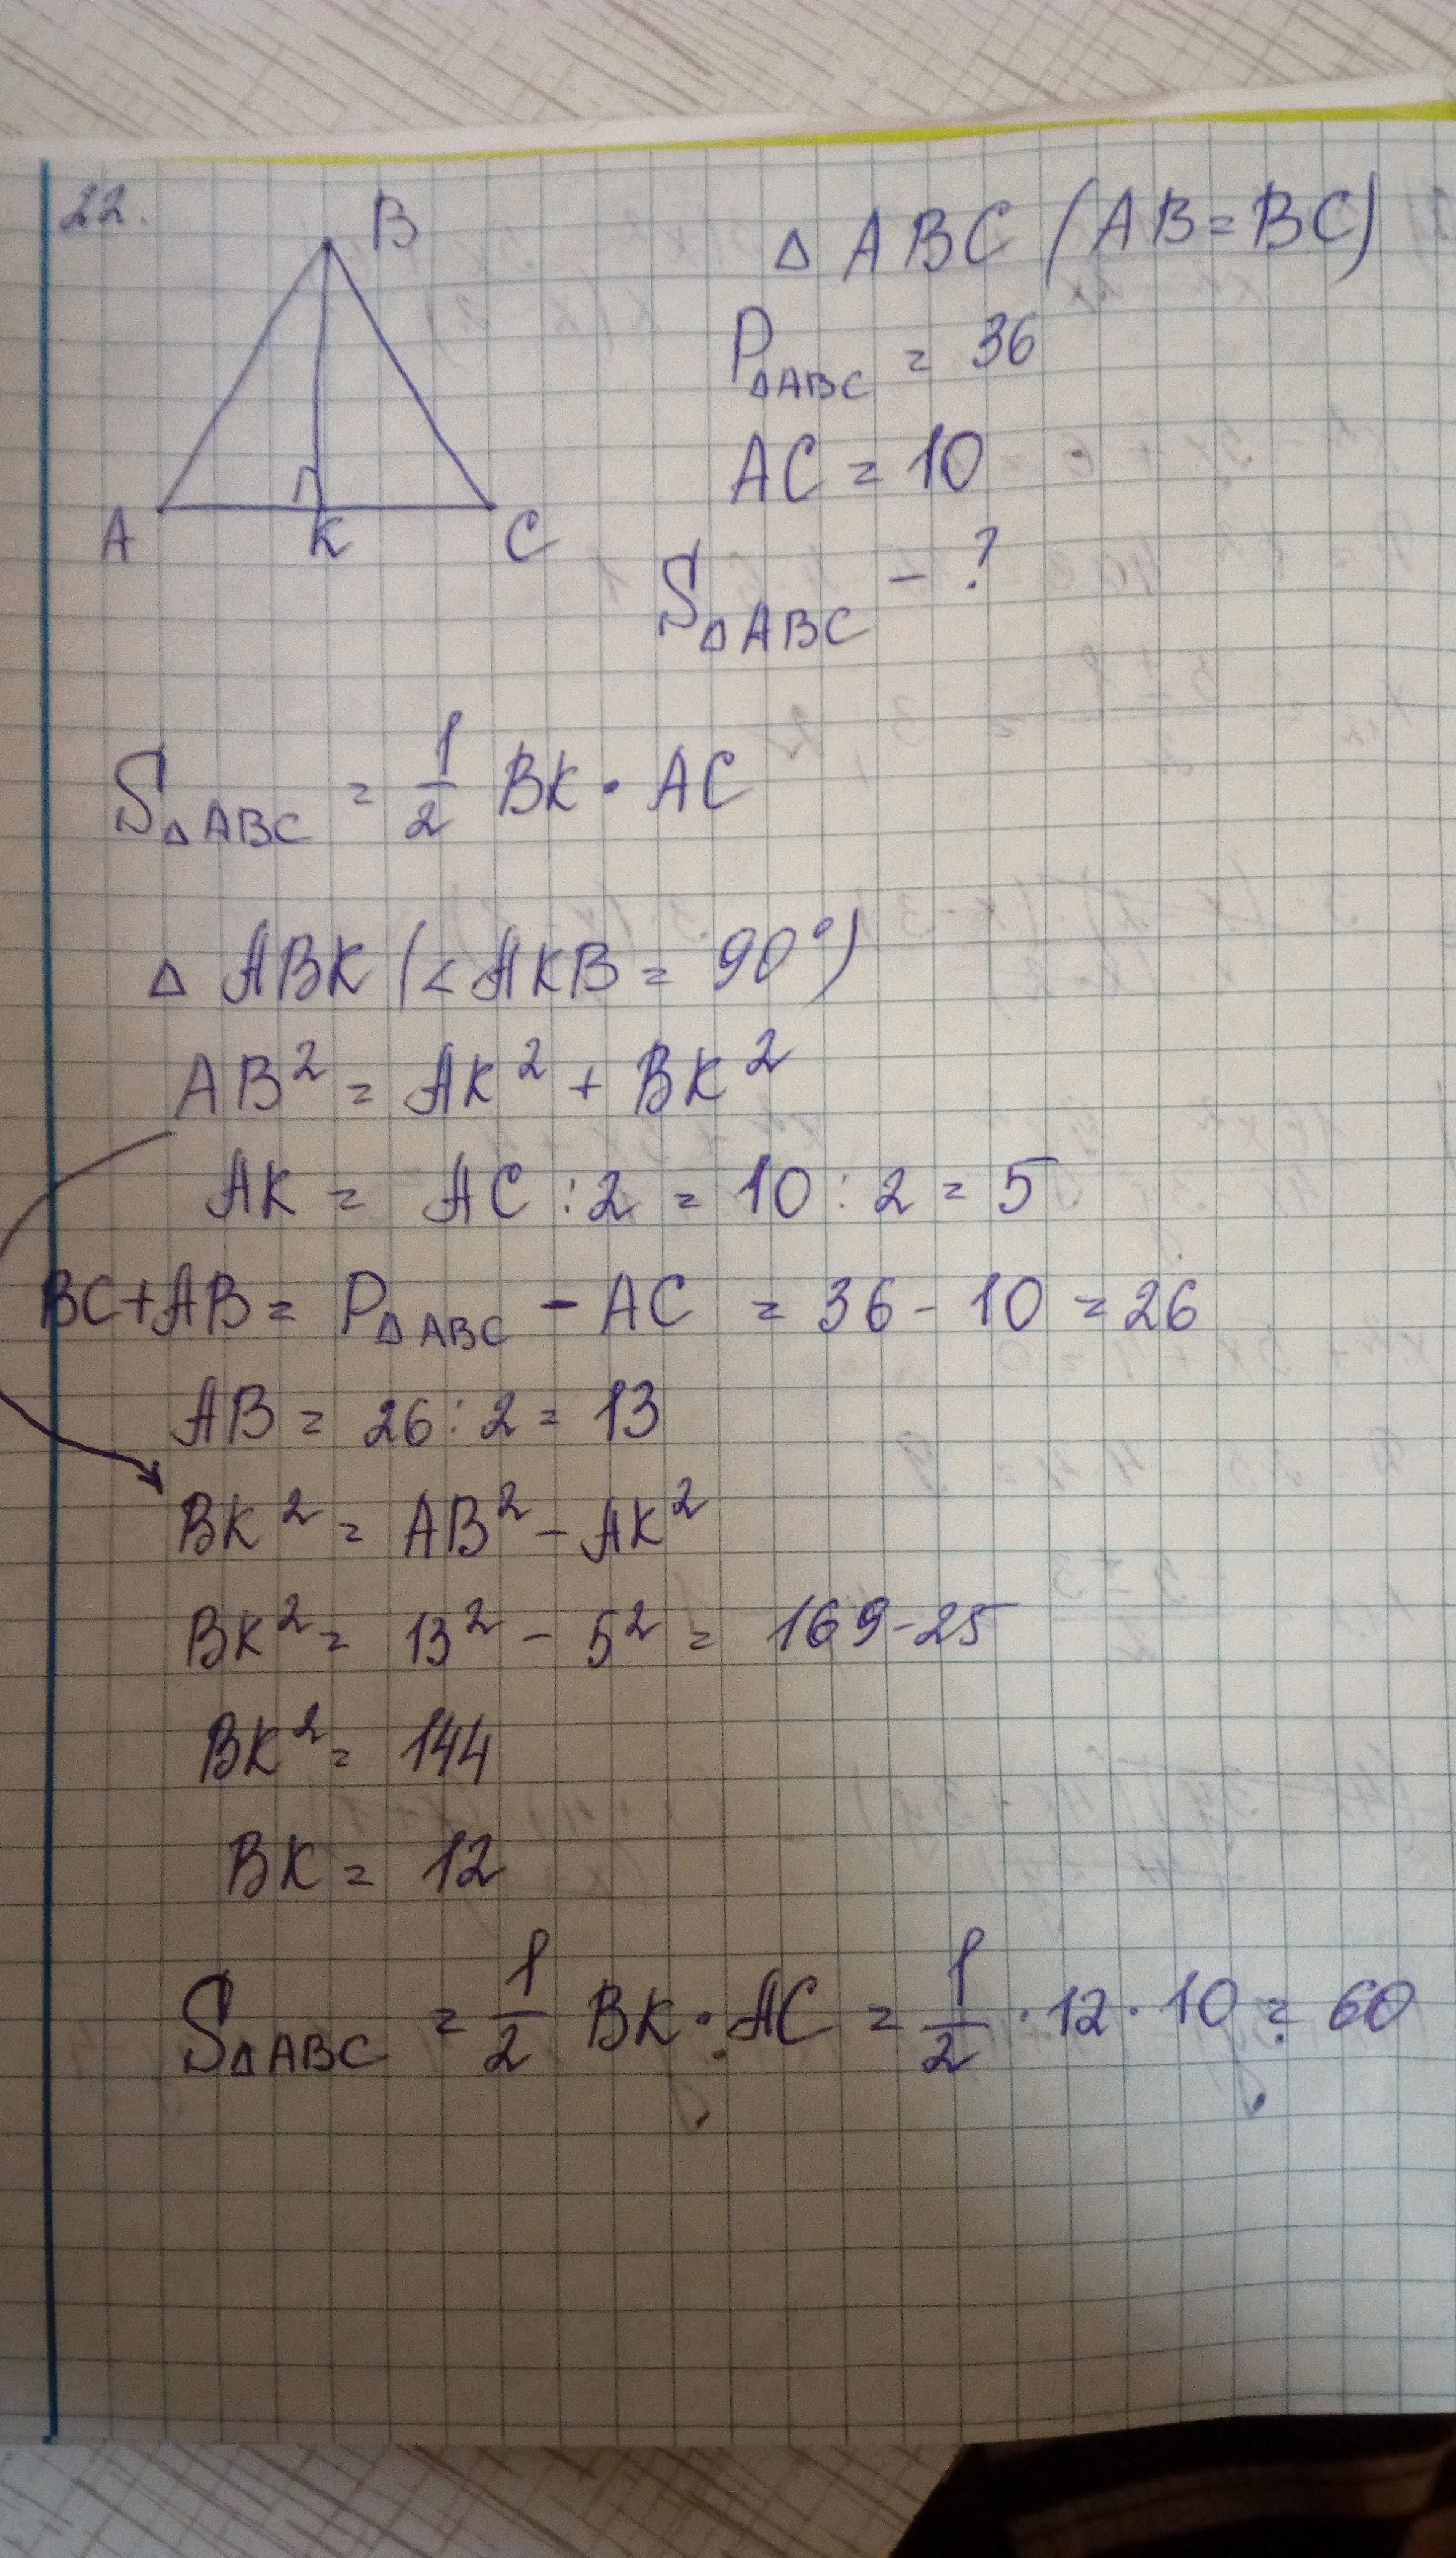 22.
B
A
K
C
△ ABC (AB = BC)
P△ABC = 36
AC = 10
S△ABC - ?
S△ABC = 1/2 BK · AC
△ ABK (< AKB = 90°)
AB² = AK² + BK²
AK = AC : 2 = 10 : 2 = 5
BC + AB = P△ABC - AC = 36 - 10 = 26
AB = 26 : 2 = 13
BK² = AB² - AK²
BK² = 13² - 5² = 169 - 25
BK² = 144
BK = 12
S△ABC = 1/2 BK · AC = 1/2 · 12 · 10 = 60